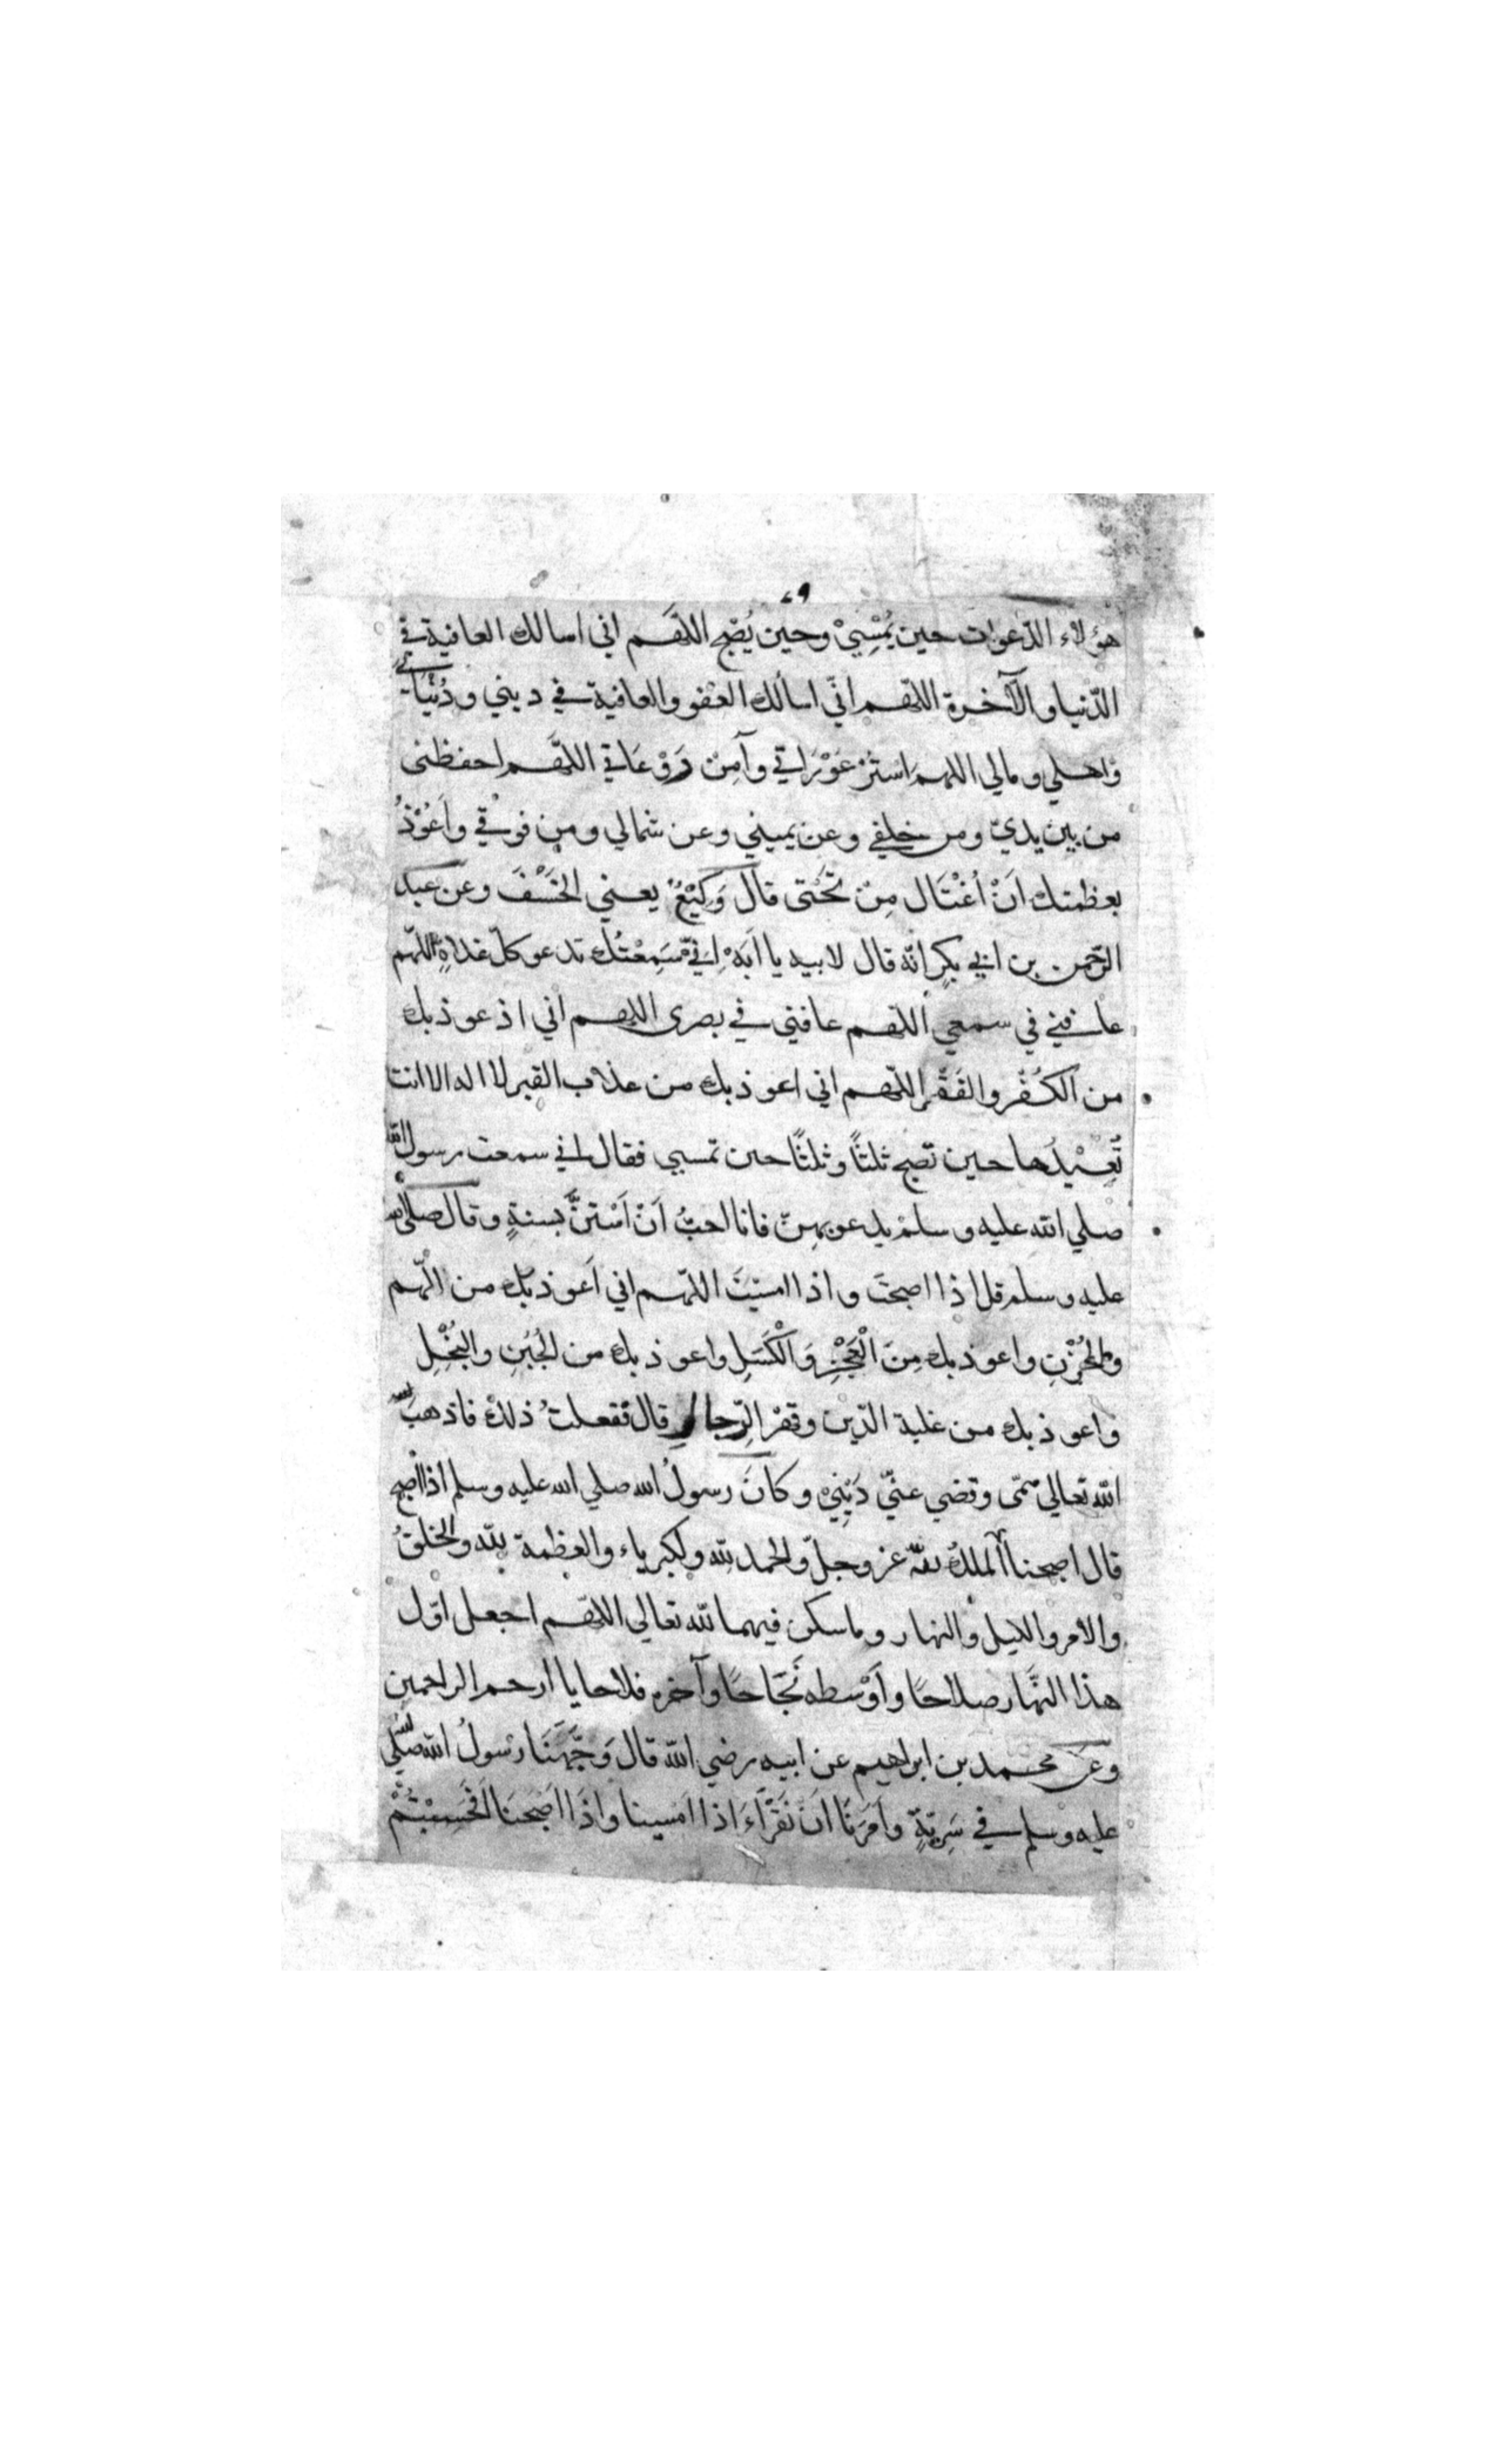 ٤٩
هؤلاء الدّعوات حين يُمْسِيْ وحين يُصْبح اللّهَم اني اسالك العافية في
الدّنيا والآخرة اللّهم انّي اسألك العَفو والعافية في ديني ودُنْيَاي
وَاهلي ومالي اللهم اسْتُرْ عَوْرَاتي وآمِنْ رَوْعَاتي اللّهَم احفظنى
من بين يديّ ومن خلفي وعن يميني وعن شمالي ومن فوقي وأعُوْذُ
بعظمتك اَنْ أُغْتَال مِنْ تحَتى قال وَكِيْعٌ يعني الخَسْفَ وعن عبد
الرّحمن بن ابي بكرٍ انّه قال لابيه يا اَبَهْ اِنّي سَمِعْتُك تدعو كلّ غداةٍ اللّهم
عافني في سمعي اللّهم عافني في بصرى اللهم اني اذ عوذبك
من الكُفْر والفَقْر اللّهم اني اعوذبك من عذاب القبر لا اله الا انت
تُعِيْدُها حين تصبح ثلثًا وثلثًا حين تمسي فقال اني سمعت رسول الله
صلي الله عليه وسلمْ يدعو بهنّ فانا احبُّ اَنْ اَسْتَنَّ بسنةٍ وقال صلى الله
عليه وسلم قل اذا اصبحتَ واذا امسَيْتَ اللّهم اني اَعوذبك من الهّم
والحُزْنِ واعوذبك مِنَ الْعَجْزِ وَالْكَسَلِ واعوذبك من الجُبْنِ والبُخْلِ
واعوذبك من غلبة الدّين وقهْر الرِّجالِ قال ففعلتُ ذلك فاذهب
الله تعالي همّى وقضي عنّي دَيْنِيْ وكانَ رسولُ الله صلي الله عليه وسلم اذا اصبح
قال اصبحنا الملك لله عز وجلّ والحمد لله ولكبرياء والعظمة لله والخلقُ
والامر والليل والنهار وما سكن فيهما لله تعالي اللّهم اجعل اوّل
هذا النَّهار صلاحًا واَوْسطه نَجَاحًا وآخره فلاحا يا ارحم الراحمين
وعن محمد بن ابراهيم عن ابيه رضي الله قال وَجَّهَنَا رسُولُ الله صلي
عليه وسلم في سَرِيّةٍ واَمَرَنا اَنَ نَقْرَاءَ اذا امَسينا واذَا اصَبَحنَا اَفحَسِبْتُمْ